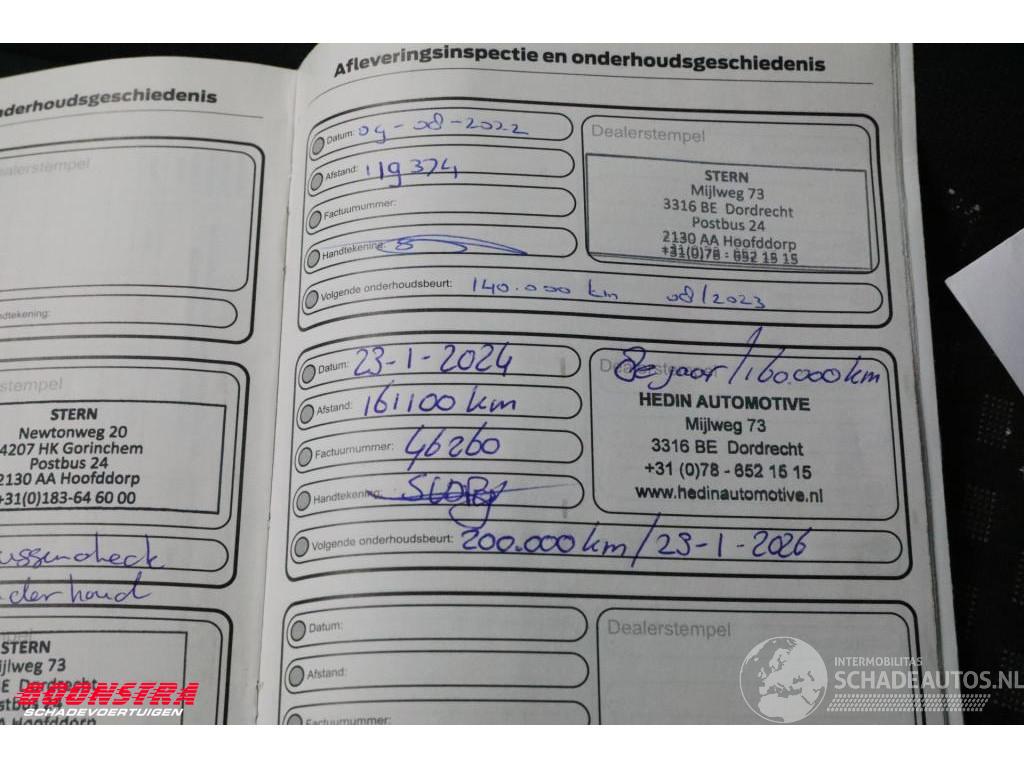 nderhoudsgeschiedenis
ealerstempel
ndtekening:
stempel
STERN
Newtonweg 20
4207 HK Gorinchem
Postbus 24
2130 AA Hoofddorp
+31(0)183-64 60 00
ussencheck
nderhoud
STERN
ijlweg 73
E Dordrecht
Afleveringsinspectie en onderhoudsgeschiedenis
Datum: 09-08-2022
Afstand: 119374
Factuurnummer:
Handtekening:
Volgende onderhoudsbeurt: 140.000 km 08/2023
Dealerstempel
STERN
Mijlweg 73
3316 BE Dordrecht
Postbus 24
2130 AA Hoofddorp
+31(0)78 - 652 15 15
Datum: 23-1-2024
Afstand: 161100 km
Factuurnummer: 46260
Handtekening:
Volgende onderhoudsbeurt: 200.000 km/23-1-2026
8e jaar/160.000km
HEDIN AUTOMOTIVE
Mijlweg 73
3316 BE Dordrecht
+31 (0)78 - 652 15 15
www.hedinautomotive.nl
Datum:
Afstand:
Factuurnummer:
Dealerstempel
BOONSTRA
SCHADEVOERTUIGEN
INTERMOBILITAS
SCHADEAUTOS.NL